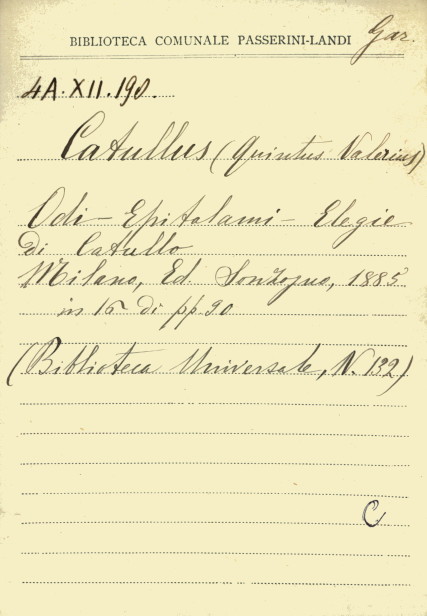 Gar.
BIBLIOTECA COMUNALE PASSERINI-LANDI
4A.XII.190.
Catullus (Quintus Valerius)
Odi - Epitalami - Elegie
di Catullo
Milano, Ed. Sonzogno, 1885
in 16 di pp. 90
(Biblioteca Universale, N. 132)
C